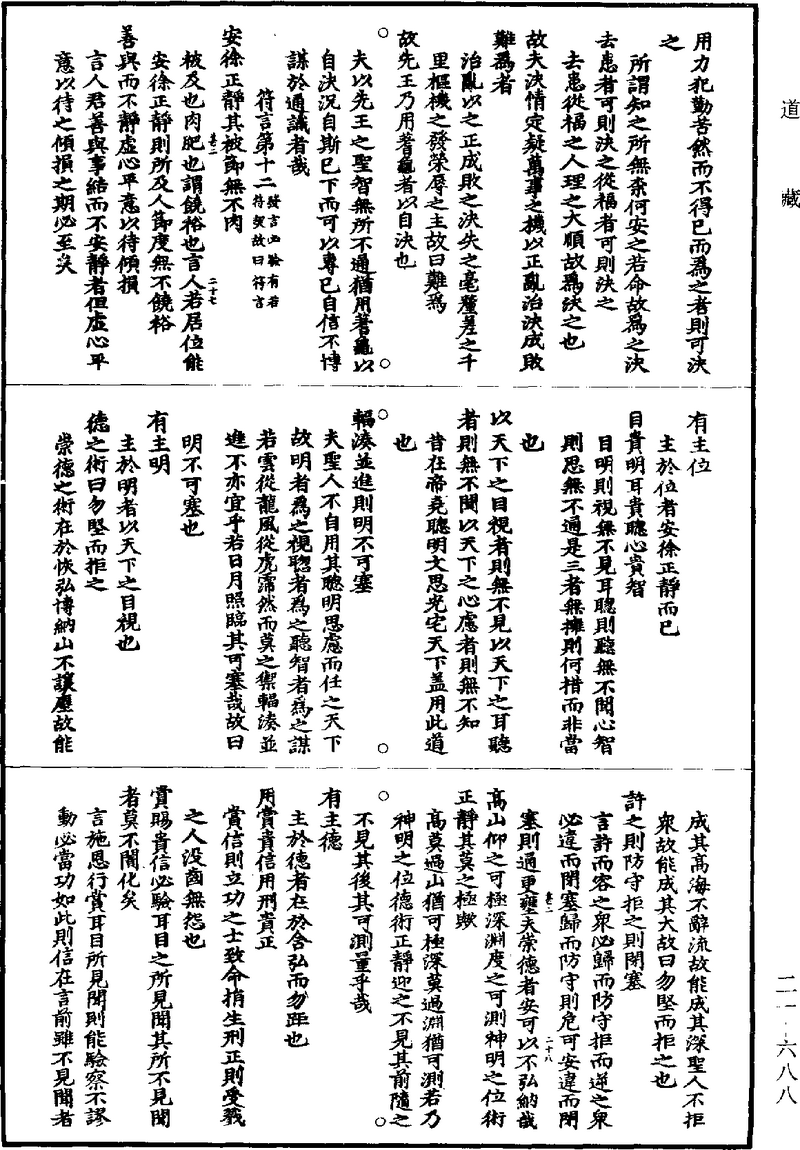 道藏
二一-六八八
用力犯勤苦然而不得已而爲之者則可決
之
所謂知之所無柰何安之若命故爲之決
去患者可則決之從福者可則決之
去患從福之人理之大順故爲決之也
故夫決情定疑萬事之機以正亂治決成敗
難爲者
治亂以之正成敗之決失之毫釐差之千
里樞機之發榮辱之主故曰難爲
故先王乃用蓍龜者以自決也
夫以先王之聖智無所不通猶用蓍龜以
自決況自斯已下而可以專已自信不博
謀於通識者哉
符言第十二發言必驗有若符契故曰符言
安徐正靜其被節無不肉
卷二
二十七
被及也肉肥也謂饒裕也言人若居位能
安徐正靜則所及人節度無不饒裕
善與而不靜虛心平意以待傾損
言人君善與事結而不安靜者但虛心平
意以待之傾損之期必至矣
有主位
主於位者安徐正靜而已
目貴明耳貴聰心貴智
目明則視無不見耳聰則聽無不聞心智
則思無不通是三者無擁則何措而非當
也
以天下之目視者則無不見以天下之耳聽
者則無不聞以天下之心慮者則無不知
昔在帝堯聰明文思光宅天下盖用此道
也
輻湊並進則明不可塞
夫聖人不自用其聰明思慮而任之天下
故明者爲之視聰者爲之聽智者爲之謀
若雲從龍風從虎霈然而莫之禦輻湊並
進不亦宜乎若日月照臨其可塞哉故曰
明不可塞也
有主明
主於明者以天下之目視也
德之術曰勿堅而拒之
崇德之術在於恢弘博納山不讓塵故能
成其高海不辭流故能成其深聖人不拒
衆故能成其大故曰勿堅而拒之也
許之則防守拒之則閉塞
言許而容之衆必歸而防守拒而逆之衆
必違而閉塞歸而防守則危可安違而閉
卷二
二十八
塞則通更壅夫崇德者安可以不弘納哉
高山仰之可極深淵度之可測神明之位術
正靜其莫之極歟
高莫過山猶可極深莫過淵猶可測若乃
神明之位德術正靜迎之不見其前隨之
不見其後其可測量乎哉
有主德
主於德者在於含弘而勿距也
用賞貴信用刑貴正
賞信則立功之士致命捐生刑正則受戮
之人没齒無怨也
賞賜貴信必驗耳目之所見聞其所不見聞
者莫不闇化矣
言施恩行賞耳目所見聞則能驗察不謬
動必當功如此則信在言前雖不見聞者